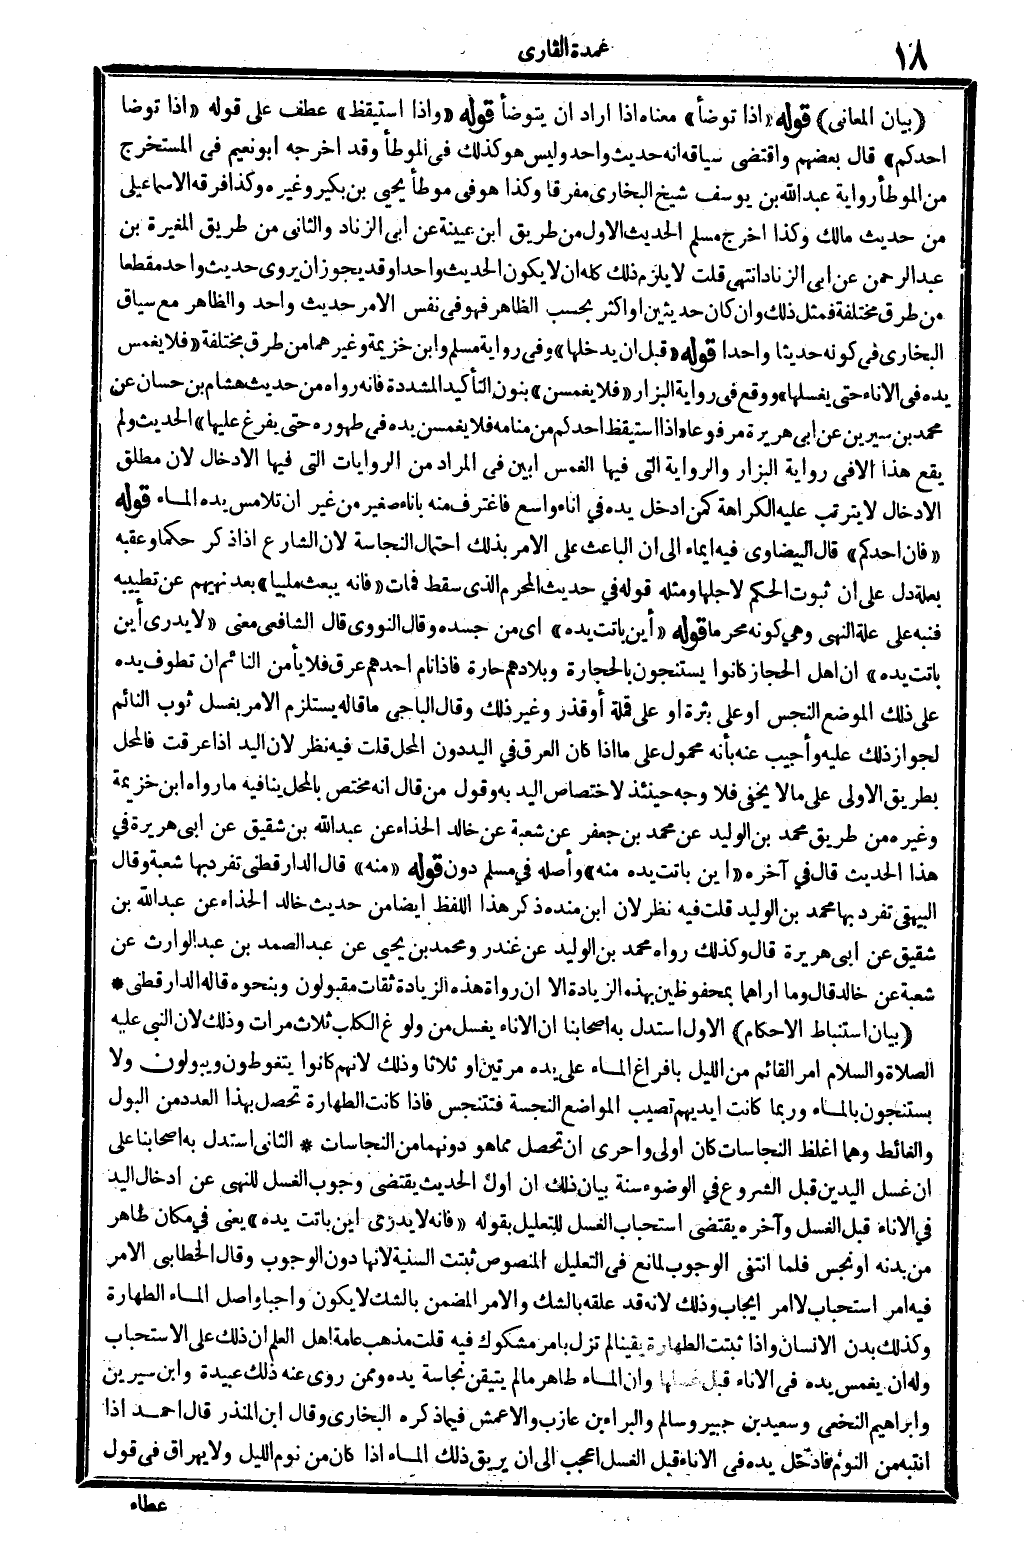 ١٨
عمدة القارى
(بيان المعانى) قوله «اذا توضأ» معناه اذا اراد ان يتوضأ قوله «واذا استيقظ» عطف على قوله «اذا توضا
احدكم» قال بعضهم واقتضى سياقه انه حديث واحد وليس هو كذلك فى الموطأ وقد اخرجه ابو نعيم فى المستخرج
من الموطأ رواية عبدالله بن يوسف شيخ البخارى مفرقا وكذا هو فى موطأ يحيى بن بكير وغيره وكذا فرقه الاسماعيلى
من حديث مالك وكذا اخرج مسلم الحديث الاول من طريق ابن عيينة عن ابى الزناد والثانى من طريق المغيرة بن
عبدالرحمن عن ابى الزناد انتهى قلت لا يلزم ذلك كله ان لا يكون الحديث واحدا وقد يجوز ان يروى حديث واحد مقطعا
من طرق مختلفة فمثل ذلك وان كان حديثين او اكثر بحسب الظاهر فهو فى نفس الامر حديث واحد والظاهر مع سياق
البخارى فى كونه حديثا واحدا قوله «قبل ان يدخلها» وفى رواية مسلم وابن خزيمة وغيرهما من طرق مختلفة «فلا يغمس
يده فى الاناء حتى يغسلها» ووقع فى رواية البزار «فلا يغمسن» بنون التأكيد المشددة فانه رواه من حديث هشام بن حسان عن
محمد بن سيرين عن ابى هريرة مرفوعا «اذا استيقظ احدكم من منامه فلا يغمسن يده فى طهوره حتى يفرغ عليها» الحديث ولم
يقع هذا الا فى رواية البزار والرواية التى فيها الغمس ابين فى المراد من الروايات التى فيها الادخال لان مطلق
الادخال لا يترتب عليه الكراهة كمن ادخل يده في اناء واسع فاغترف منه باناء صغير من غير ان تلامس يده الماء قوله
«فان احدكم» قال البيضاوى فيه ايماء الى ان الباعث على الامر بذلك احتمال النجاسة لان الشارع اذا ذكر حكما وعقبه
بعلة دل على ان ثبوت الحكم لاجلها ومثله قوله في حديث المحرم الذى سقط فمات «فانه يبعث ملبيا» بعد نهيهم عن تطييبه
فنبه على علة النهى وهي كونه محرما قوله «أين باتت يده» اى من جسده وقال النووى قال الشافعى معنى «لا يدرى أين
باتت يده» ان اهل الحجاز كانوا يستنجون بالحجارة وبلادهم حارة فاذا نام احدهم عرق فلا يأمن النائم ان تطوف يده
على ذلك الموضع النجس او على بثرة او على قملة أو قذر وغير ذلك وقال الباجى ما قاله يستلزم الامر بغسل ثوب النائم
لجواز ذلك عليه وأجيب عنه بأنه محمول على ما اذا كان العرق في اليد دون المحل قلت فيه نظر لان اليد اذا عرقت فالمحل
بطريق الاولى على مالا يخفى فلا وجه حينئذ لاختصاص اليد به وقول من قال انه مختص بالمحل ينافيه ما رواه ابن خزيمة
وغيره من طريق محمد بن الوليد عن محمد بن جعفر عن شعبة عن خالد الحذاء عن عبدالله بن شقيق عن ابى هريرة في
هذا الحديث قال في آخره «اين باتت يده منه» وأصله في مسلم دون قوله «منه» قال الدارقطنى تفرد بها شعبة وقال
البيهقى تفرد بها محمد بن الوليد قلت فيه نظر لان ابن منده ذكر هذا اللفظ ايضا من حديث خالد الحذاء عن عبدالله بن
شقيق عن ابى هريرة قال وكذلك رواه محمد بن الوليد عن غندر ومحمد بن يحيى عن عبدالصمد بن عبدالوارث عن
شعبة عن خالد قال وما اراهما بمحفوظين بهذه الزيادة الا ان رواة هذه الزيادة ثقات مقبولون وبنحوه قاله الدارقطنى *
(بيان استنباط الاحكام) الاول استدل به اصحابنا ان الاناء يغسل من ولوغ الكلب ثلاث مرات وذلك لان النبى عليه
الصلاة والسلام امر القائم من الليل بافراغ الماء على يده مرتين او ثلاثا وذلك لانهم كانوا يتغوطون ويبولون ولا
يستنجون بالماء وربما كانت ايديهم تصيب المواضع النجسة فتتنجس فاذا كانت الطهارة تحصل بهذا العدد من البول
والغائط وهما اغلظ النجاسات كان اولى واحرى ان تحصل مما هو دونهما من النجاسات * الثانى استدل به اصحابنا على
ان غسل اليدين قبل الشروع في الوضوء سنة بيان ذلك ان اول الحديث يقتضى وجوب الغسل للنهى عن ادخال اليد
في الاناء قبل الغسل وآخره يقتضى استحباب الغسل للتعليل بقوله «فانه لا يدرى اين باتت يده» يعنى في مكان طاهر
من بدنه او نجس فلما انتفى الوجوب لمانع فى التعليل المنصوص ثبتت السنية لانها دون الوجوب وقال الخطابى الامر
فيه امر استحباب لا امر ايجاب وذلك لانه قد علقه بالشك والامر المضمن بالشك لا يكون واجبا واصل الماء الطهارة
وكذلك بدن الانسان واذا ثبتت الطهارة يقينا لم تزل بامر مشكوك فيه قلت مذهب عامة اهل العلم ان ذلك على الاستحباب
وله ان يغمس يده فى الاناء قبل غسلها وان الماء طاهر مالم يتيقن نجاسة يده وممن روى عنه ذلك عبيدة وابن سيرين
وابراهيم النخعى وسعيد بن جبير وسالم والبراء بن عازب والاعمش فيما ذكره البخارى وقال ابن المنذر قال احمد اذا
انتبه من النوم فادخل يده فى الاناء قبل الغسل اعجب الى ان يريق ذلك الماء اذا كان من نوم الليل ولا يهراق فى قول
عطاء